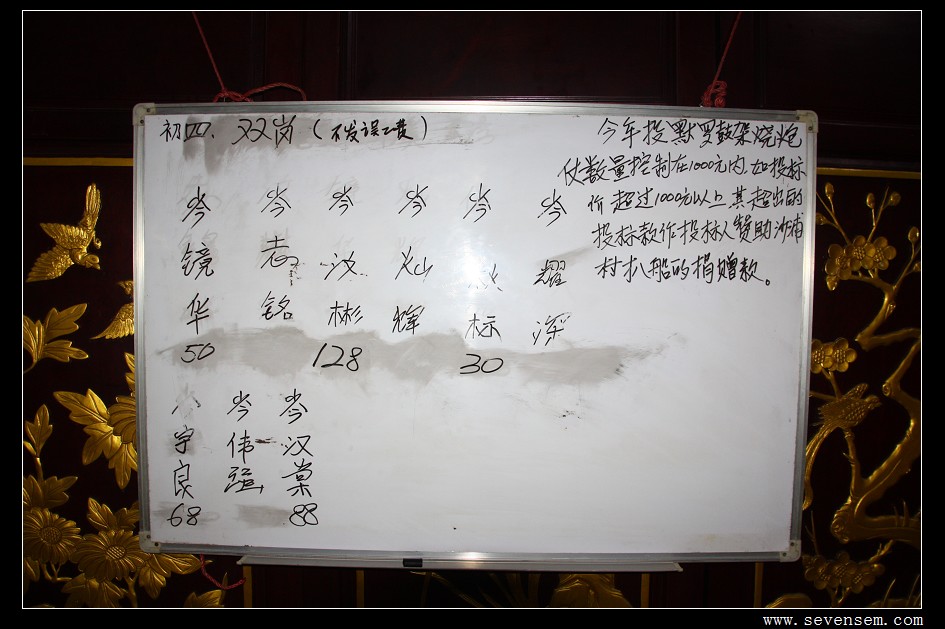 初四、双岗（不发误工费）
今年投默罗鼓架烧炮
仗数量控制在1000元内,如投标
价超过1000元以上,其超出的
投标款作投标人赞助沙浦
村扒船的捐赠款。
岑镜华
50
岑志铭
岑汝彬
128
岑灿辉
岑 标
30
岑耀深
宇良
68
岑伟强
岑汉棠
88
www.sevensem.com